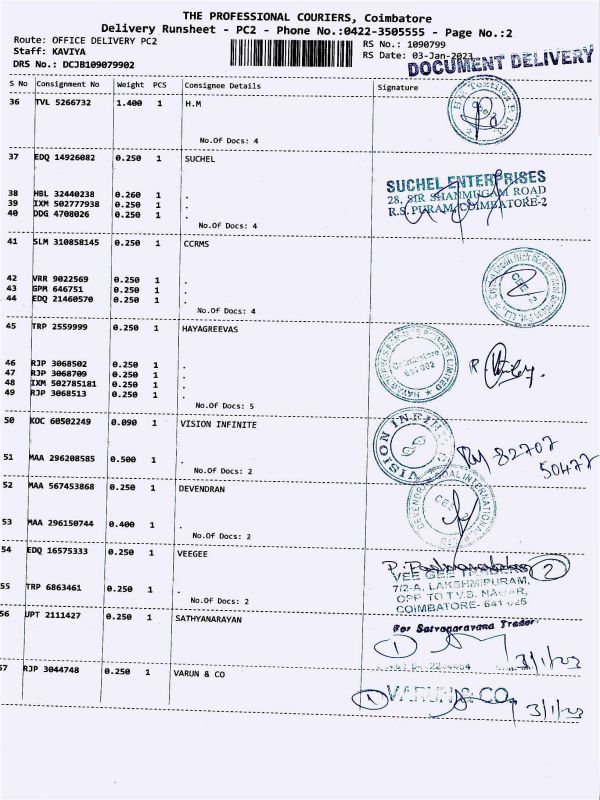 THE PROFESSIONAL COURIERS, Coimbatore
Delivery Runsheet - PC2 - Phone No.:0422-3505555 - Page No.:2
Route: OFFICE DELIVERY PC2
RS No.: 1090799
Staff: KAVIYA
RS Date: 03-Jan-2023
DRS No.: DCJB109079902
DOCUMENT DELIVERY
S No Consignment No Weight PCS Consignee Details Signature
36 TVL 5266732 1.400 1 H.M
No.Of Docs: 4
37 EDQ 14926082 0.250 1 SUCHEL
SUCHEL ENTERPRISES
28, SIR SHANMUGAM ROAD
R.S. PURAM, COIMBATORE-2
38 HBL 32440238 0.260 1 .
39 IXM 502777938 0.250 1 .
40 DDG 4708026 0.250 1 .
No.Of Docs: 4
41 SLM 310858145 0.250 1 CCRMS
42 VRR 9022569 0.250 1 .
43 GPM 646751 0.250 1 .
44 EDQ 21460570 0.250 1 .
No.Of Docs: 4
45 TRP 2559999 0.250 1 HAYAGREEVAS
46 RJP 3068502 0.250 1 .
47 RJP 3068709 0.250 1 .
48 IXM 502785181 0.250 1 .
49 RJP 3068513 0.250 1 .
No.Of Docs: 5
50 KOC 60502249 0.090 1 VISION INFINITE
VISION INFINITE
82707
50477
51 MAA 296208585 0.500 1 .
No.Of Docs: 2
52 MAA 567453868 0.250 1 DEVENDRAN
53 MAA 296150744 0.400 1 .
No.Of Docs: 2
54 EDQ 16575333 0.250 1 VEEGEE
2
VEE GEE TRADERS
7/2-A, LAKSHMIPURAM,
OPP TO T.V.S. NAGAR,
COIMBATORE- 641 025
55 TRP 6863461 0.250 1 .
No.Of Docs: 2
56 UPT 2111427 0.250 1 SATHYANARAYAN
For Satyanarayana Trader
1
3/1/23
57 RJP 3044748 0.250 1 VARUN & CO
1 VARUN & CO, 3/1/23